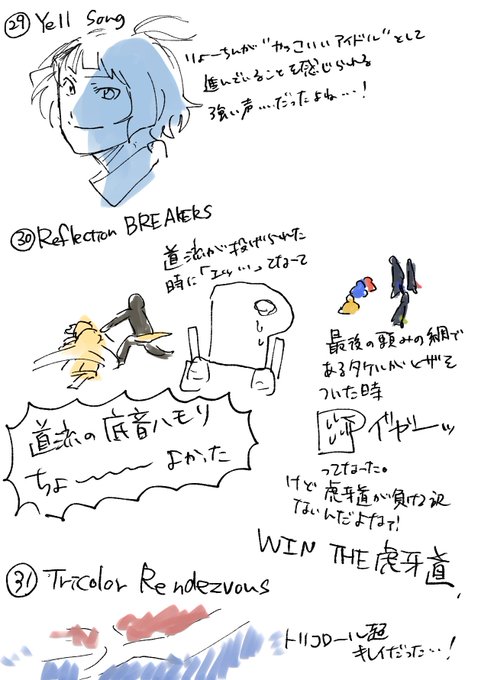 ㉙ Yell Song
りょーちんが“かっこいいアイドル”として
進んでいることを感じられる
強い声…だったよね…！
㉚ Reflection BREAKERS
道流が投げられた
時に「エッ…」てなって
道流の底音ハモリ
ちょ〜〜〜よかった
最後の頼みの綱で
あるタケルがヒザを
ついた時
イヤーッ
ってなった。
けど虎牙道が負ける訳
ないんだよなァ!
WIN THE 虎牙道
㉛ Tricolor Rendezvous
トリコロール超
キレイだった…！